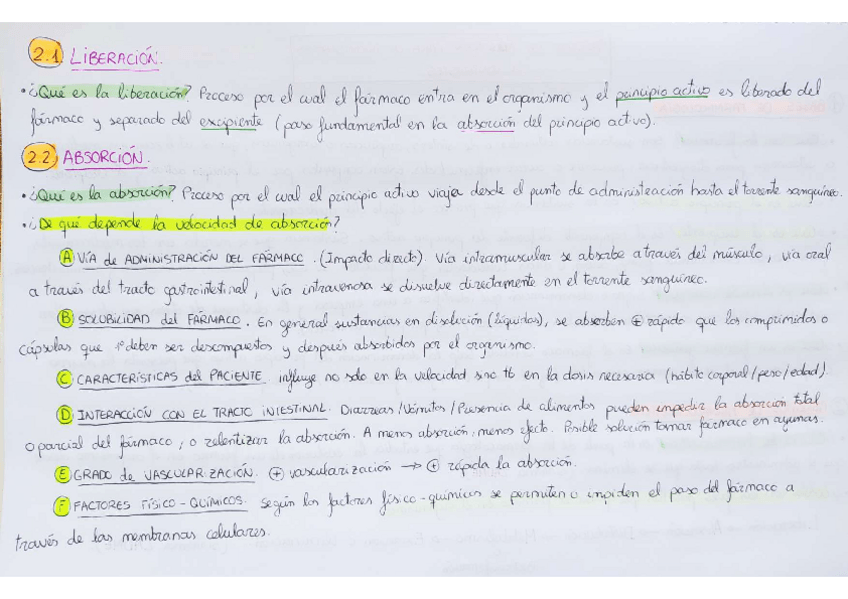 2.1. LIBERACIÓN.
• ¿Qué es la liberación? Proceso por el cual el fármaco entra en el organismo y el principio activo es liberado del
fármaco y separado del excipiente (paso fundamental en la absorción del principio activo).
2.2. ABSORCIÓN.
• ¿Qué es la absorción? Proceso por el cual el principio activo viaja desde el punto de administración hasta el torrente sanguíneo.
• ¿De qué depende la velocidad de absorción?
A VÍA de ADMINISTRACIÓN DEL FÁRMACO. (Impacto directo). Vía intramuscular se absorbe a través del músculo, vía oral
a través del tracto gastrointestinal, vía intravenosa se disuelve directamente en el torrente sanguíneo.
B SOLUBILIDAD del FÁRMACO. En general sustancias en disolución (líquidas), se absorben ⊕ rápido que los comprimidos o
cápsulas que 1º deben ser descompuestos y después absorbidos por el organismo.
C CARACTERÍSTICAS del PACIENTE. influye no solo en la velocidad sino tb en la dosis necesaria (hábito corporal/peso/edad).
D INTERACCIÓN CON EL TRACTO INTESTINAL. Diarreas/Vómitos/Presencia de alimentos pueden impedir la absorción total
o parcial del fármaco, o relentizar la absorción. A menos absorción, menos efecto. Posible solución tomar fármaco en ayunas.
E GRADO de VASCULARIZACIÓN. ⊕ vascularización → ⊕ rápida la absorción.
F FACTORES FÍSICO-QUÍMICOS. Según los factores físico-químicos se permiten o impiden el paso del fármaco a
través de las membranas celulares.